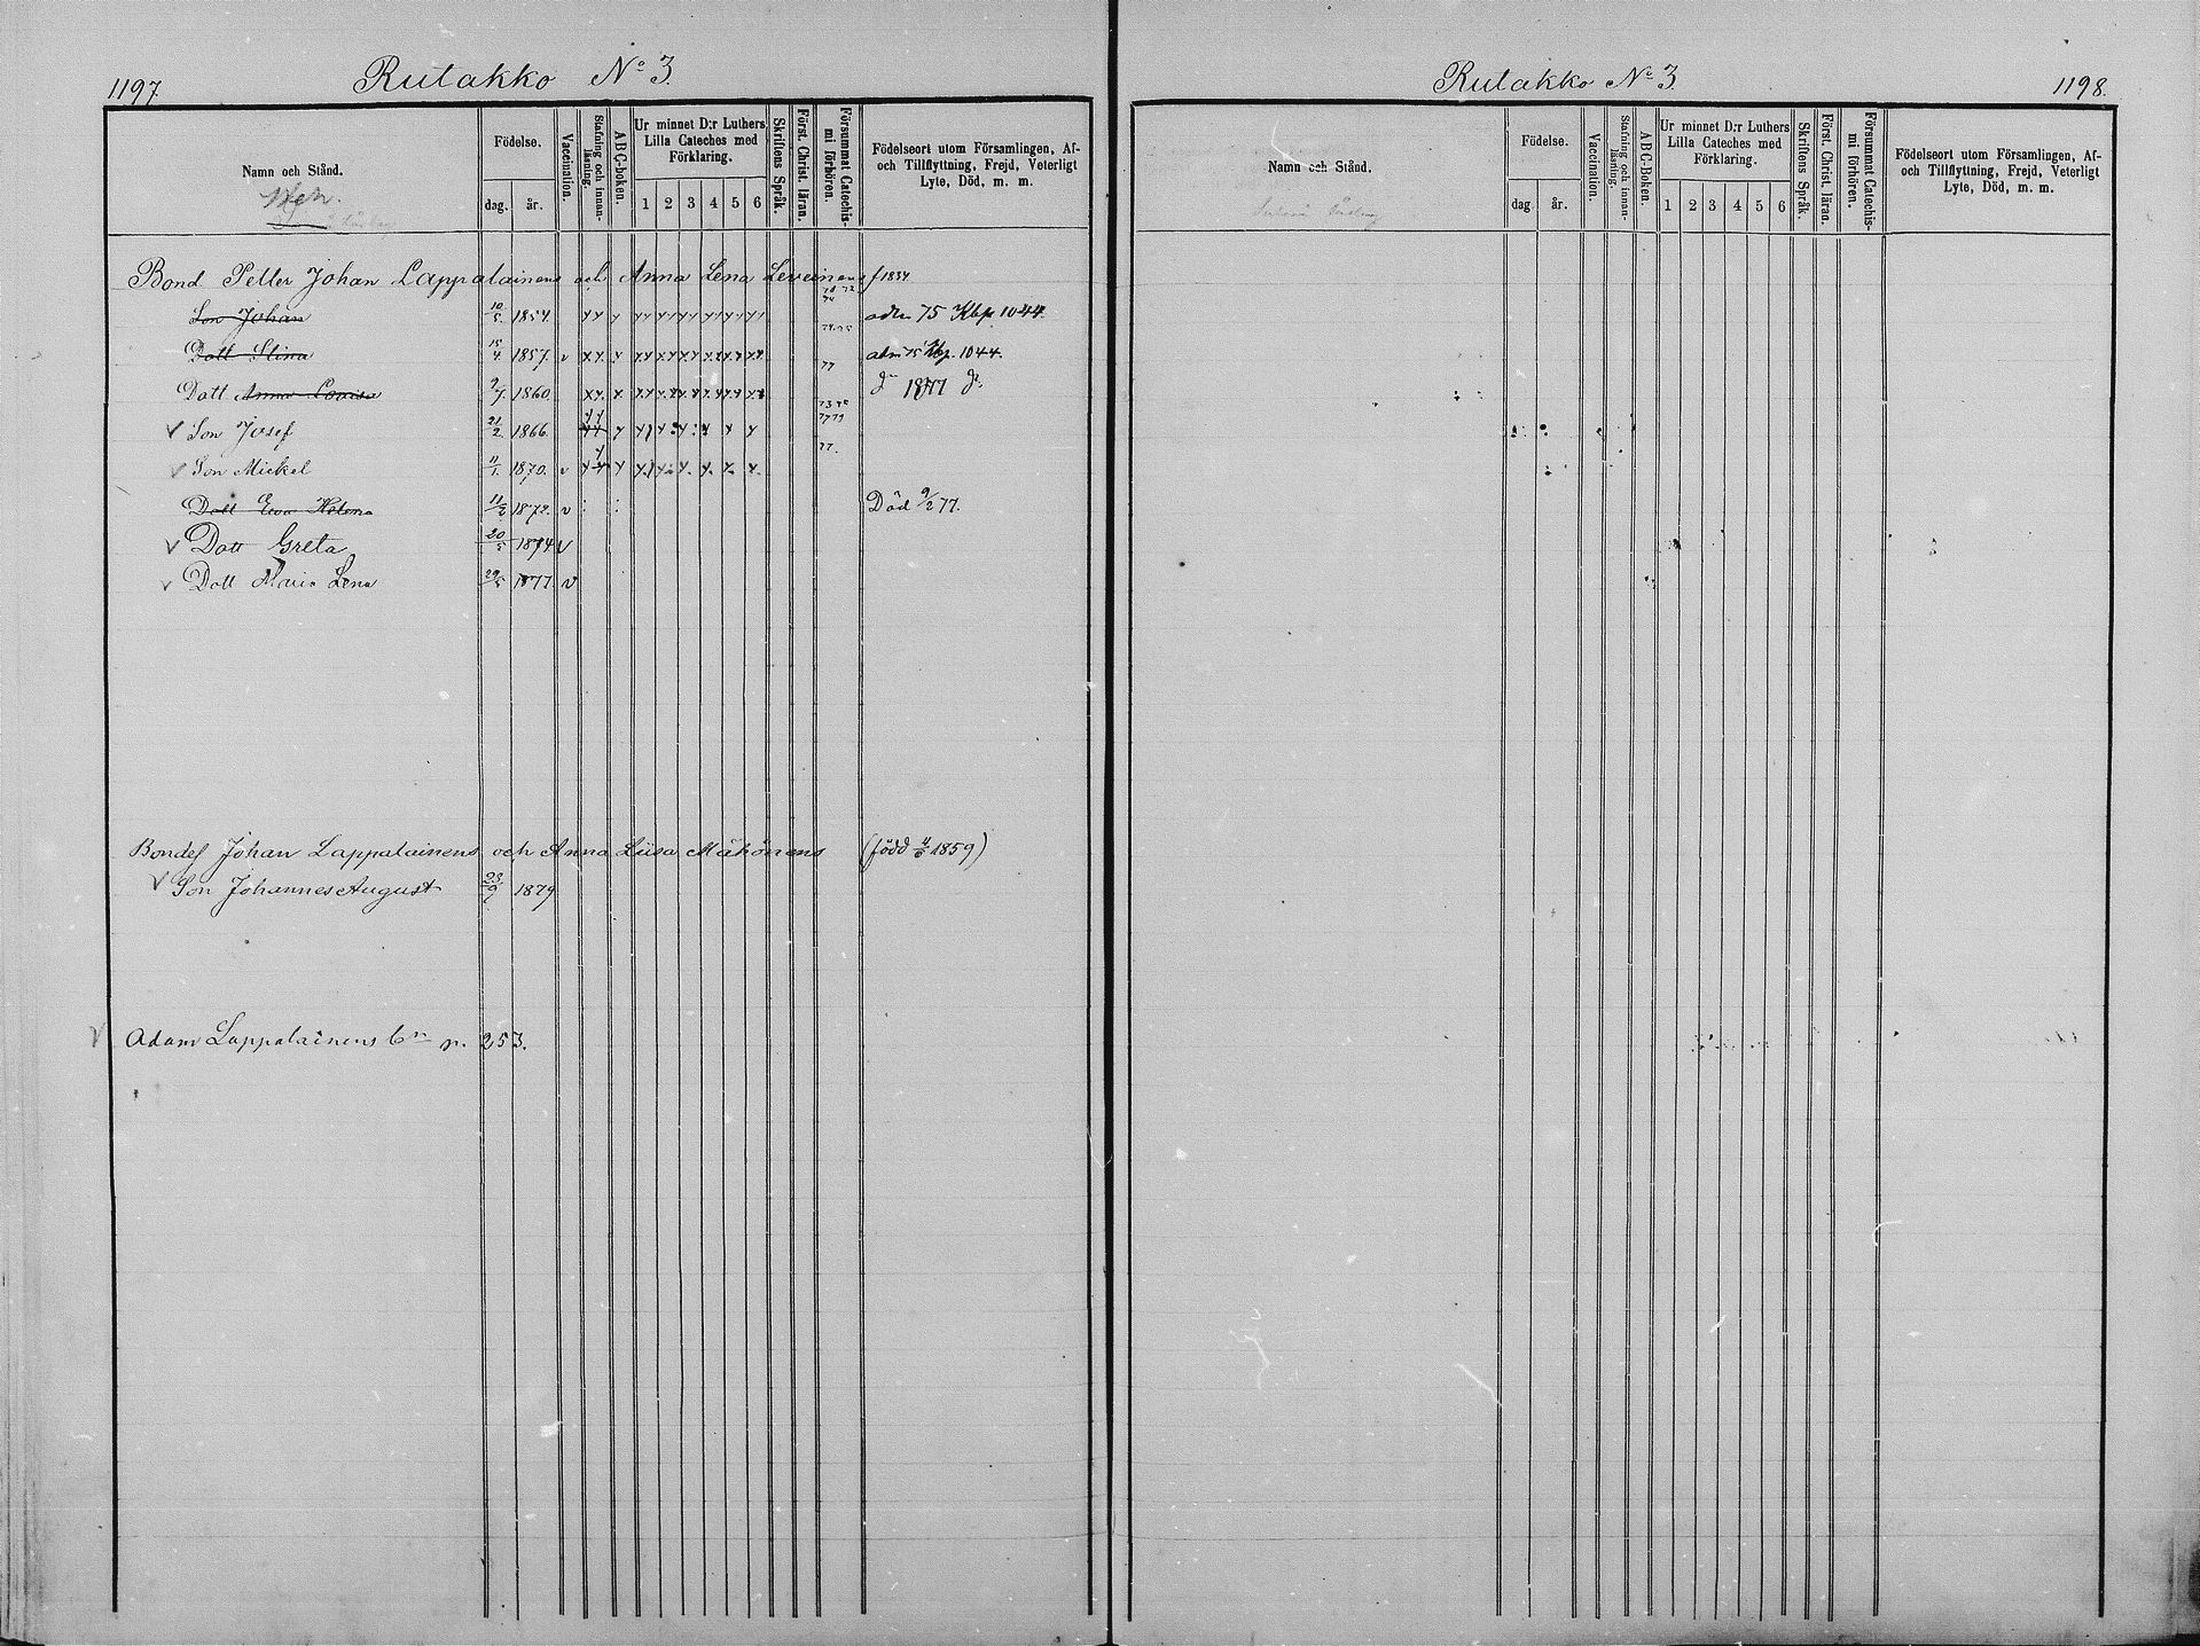 1197.
Rutakko No 3.
Namn och Stånd.
Födelse.
dag. år.
Vaccination.
Stafning och innan-läsning.
ABC-boken.
Ur minnet D:r Luthers Lilla Cateches med Förklaring.
1 2 3 4 5 6
Skriftens Språk.
Först. Christ. läran.
Försummat Catechis-mi förhören.
Födelseort utom Församlingen, Af- och Tillflyttning, Frejd, Veterligt Lyte, Död, m. m.
Bond Petter Johan Lappalainens och Anna Lena Leveinens f 1834
Son Johan 10/5. 1854. adm 75 Kbp 1044.
Dott Stina 15/4. 1857. v adm 75 Kbp. 1044. 77
Dott Anna Lovisa 9/7. 1860. do 1877 do.
V Son Josef 21/2. 1866. 77 79
V Son Mickel 11/1. 1870. v 77.
Dott Eva Helena 11/2 1872. v Död 9/2 77.
V Dott Greta 20/5 1874 v
V Dott Maria Lena 29/5 1877. v
Bondes Johan Lappalainens och Anna Liisa Mähönens (född 4/6 1859)
V Son Johannes August 23/9 1879
V Adam Lappalainens bn p. 253.
Rutakko No 3
1198.
Namn och Stånd.
Födelse.
dag år.
Vaccination.
Stafning och innan-läsning.
ABC-Boken.
Ur minnet D:r Luthers Lilla Cateches med Förklaring.
1 2 3 4 5 6
Skriftens Språk.
Först. Christ. läran.
Försummat Catechis-mi förhören.
Födelseort utom Församlingen, Af- och Tillflyttning, Frejd, Veterligt Lyte, Död, m. m.